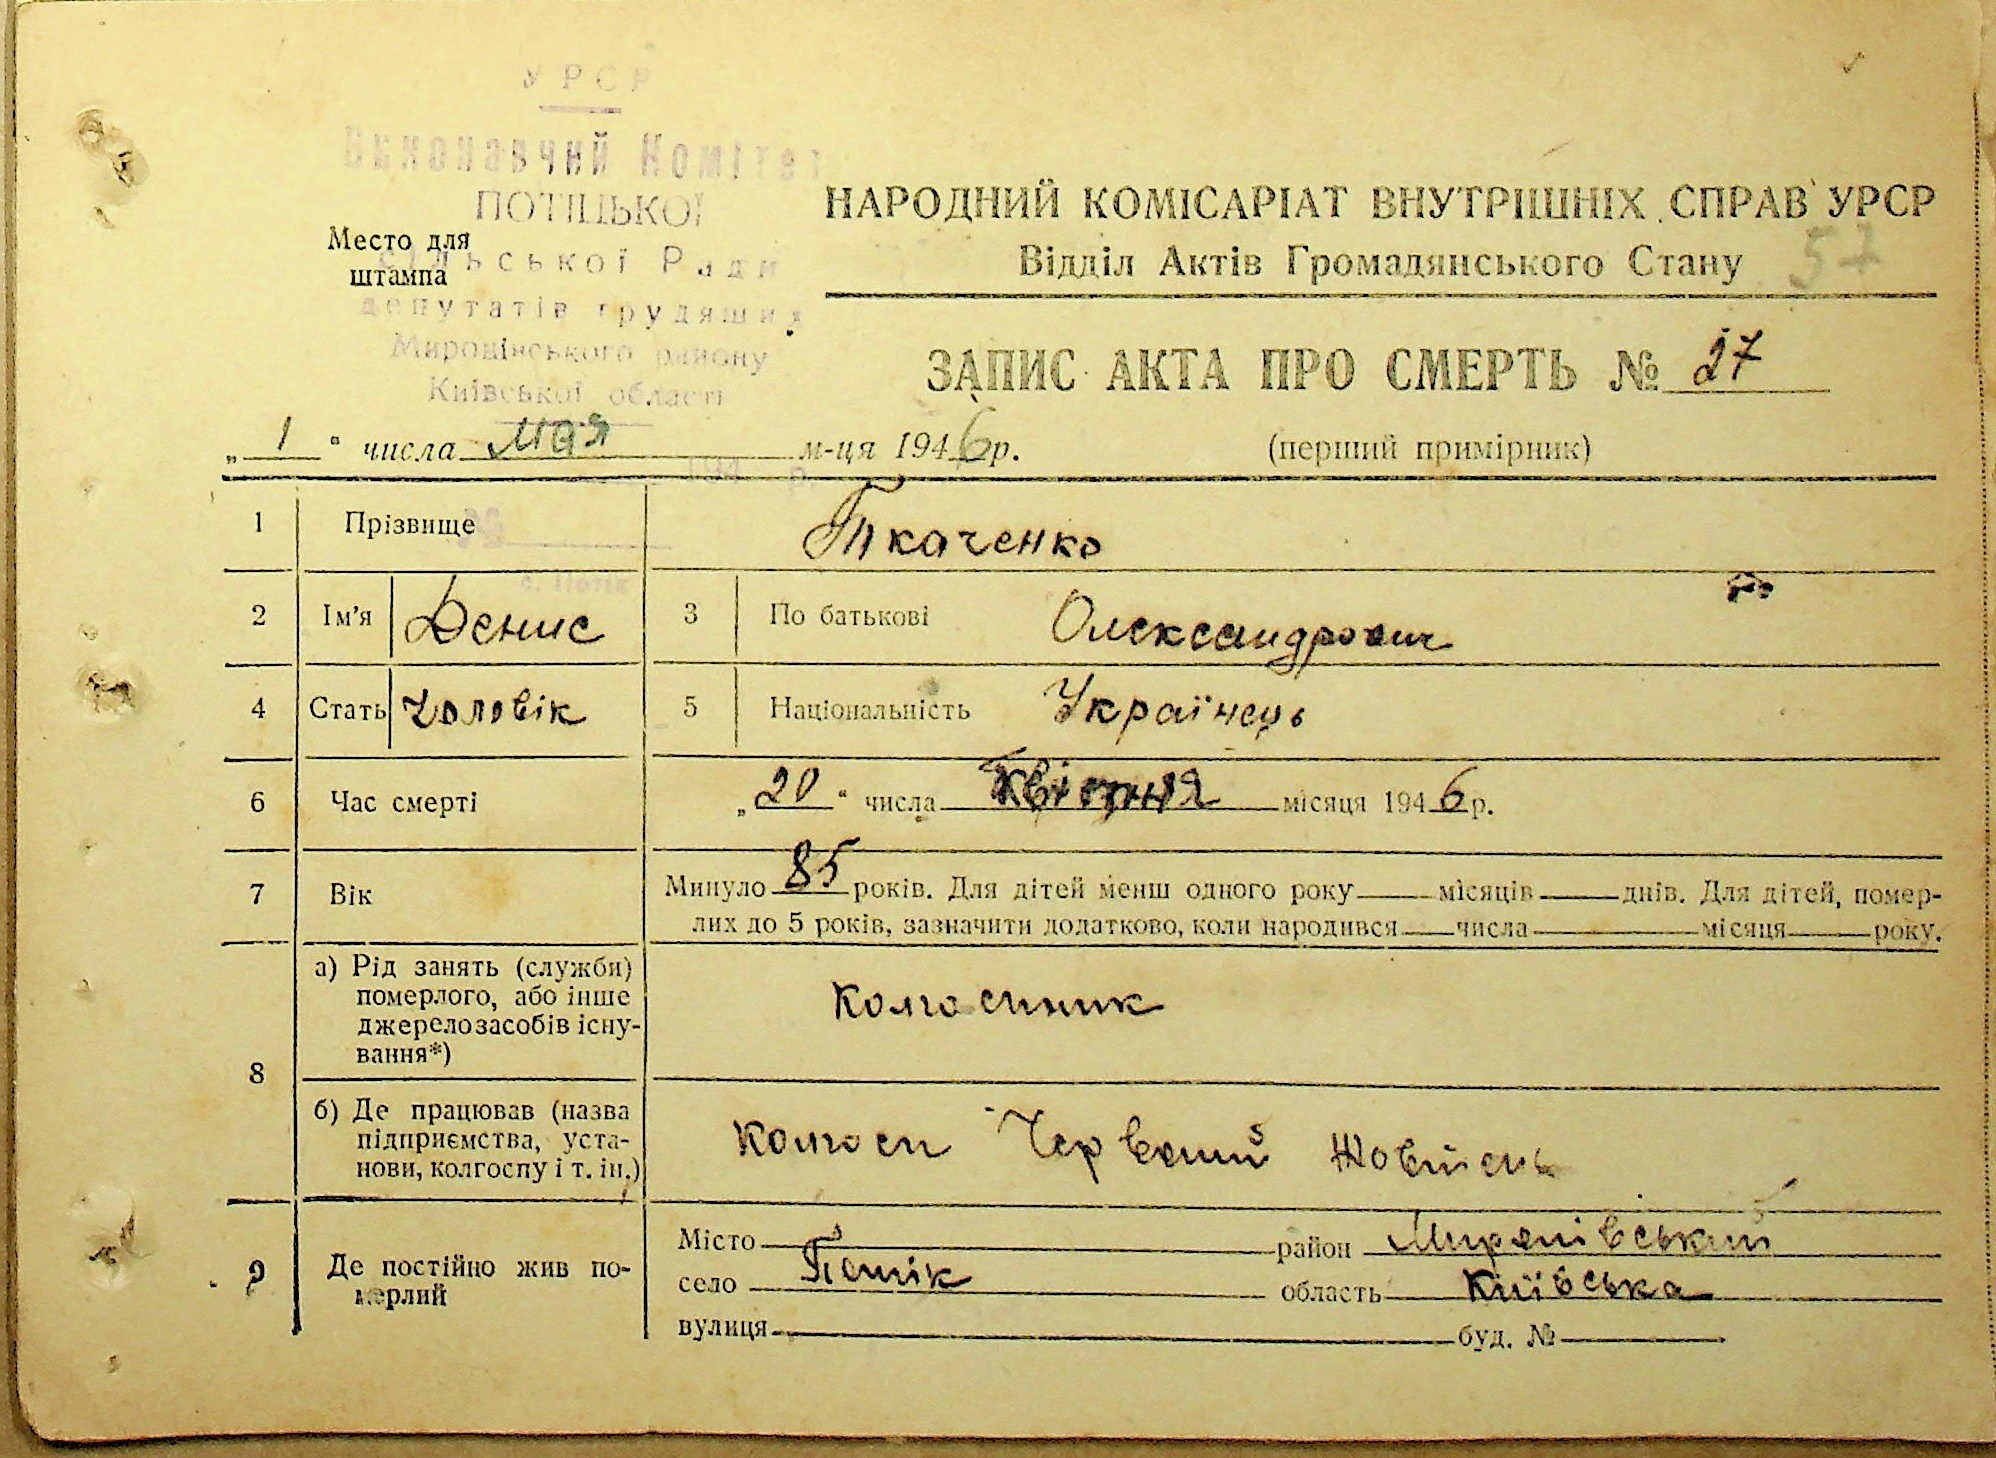 УРСР
Виконавчий Комітет
ПОТІЦЬКОЇ
сільської Ради
депутатів трудящих
Миронівського району
Київської області
194 р.
с. Потік
Место для
штампа
НАРОДНИЙ КОМІСАРІАТ ВНУТРІШНІХ СПРАВ УРСР
Відділ Актів Громадянського Стану
57
ЗАПИС АКТА ПРО СМЕРТЬ № 27
„1“ числа мая м-ця 1946р.
(перший примірник)
1 Прізвище Ткаченко
2 Ім'я Денис 3 По батькові Олександрович
4 Стать чоловік 5 Національність Українець
6 Час смерті „20“ числа квітня місяця 1946р.
7 Вік Минуло 85 років. Для дітей менш одного року місяців днів. Для дітей, помер-
лих до 5 років, зазначити додатково, коли народився числа місяця року.
8 а) Рід занять (служби)
померлого, або інше
джерело засобів існу-
вання*)
Колгоспник
б) Де працював (назва
підприємства, уста-
нови, колгоспу і т. ін.)
Колгосп Червоний Жовтень
9 Де постійно жив по-
мерлий
Місто район Миронівський
село Потік область Київська
вулиця буд. №